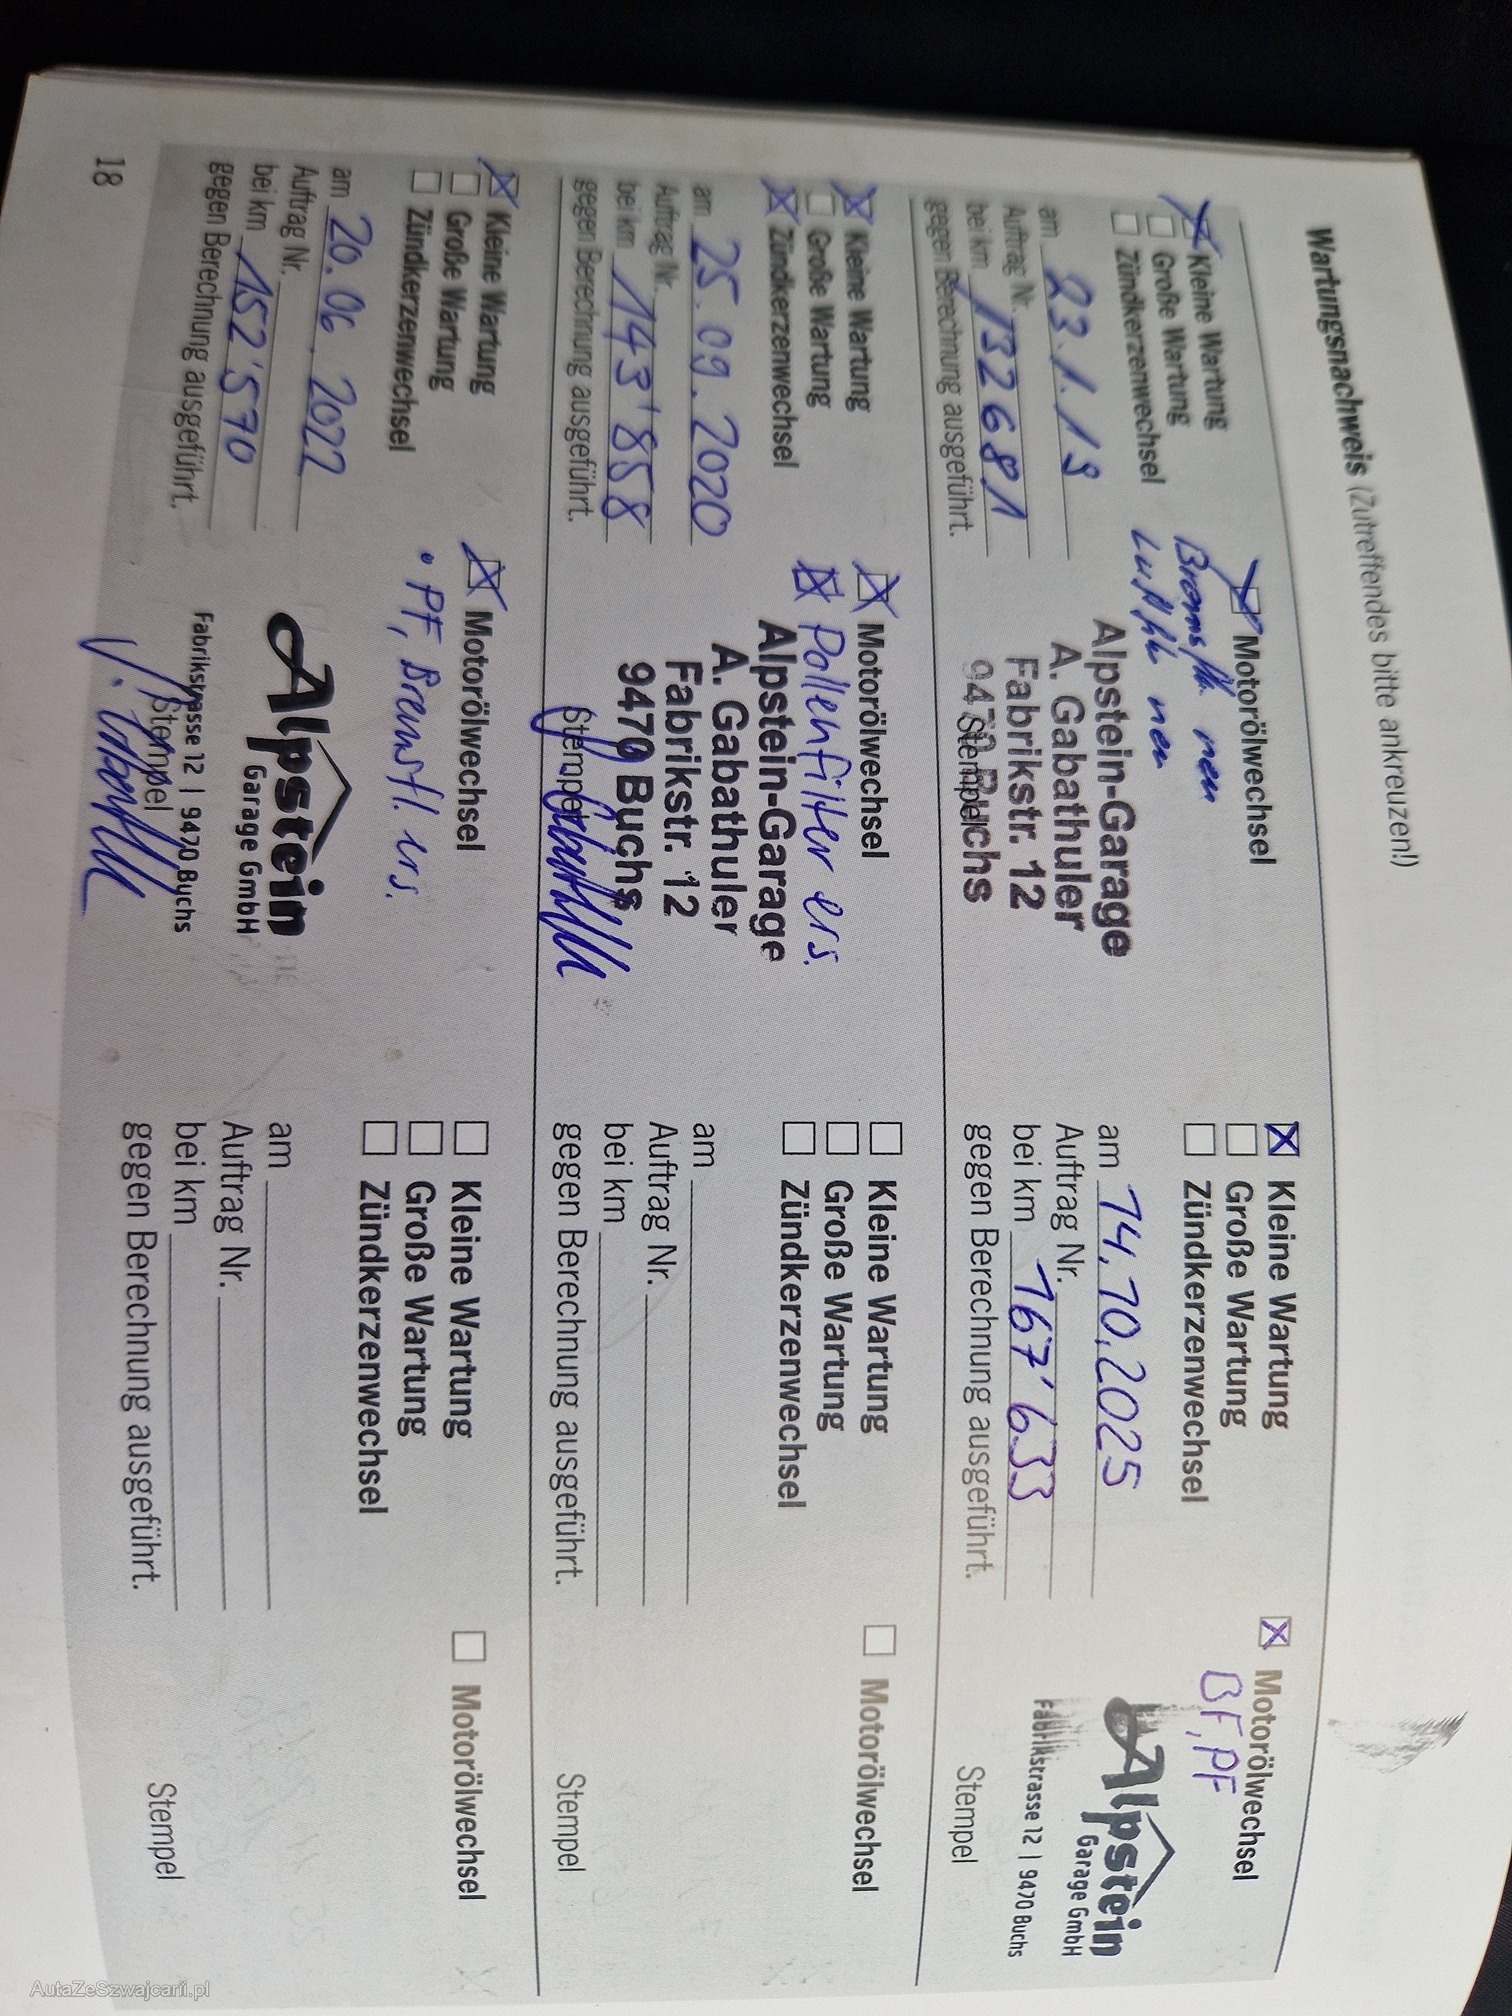 Wartungsnachweis (Zutreffendes bitte ankreuzen!)
Kleine Wartung
Große Wartung
Zündkerzenwechsel
Motorölwechsel
Bremsfl. neu
Luftfil. neu
am 23.1.19
Auftrag Nr.
bei km 132681
gegen Berechnung ausgeführt.
Alpstein-Garage
A. Gabathuler
Fabrikstr. 12
9470 Buchs
Stempel
Kleine Wartung
Große Wartung
Zündkerzenwechsel
Motorölwechsel
Pollenfilter ers.
am 25.09.2020
Auftrag Nr.
bei km 143'858
gegen Berechnung ausgeführt.
Alpstein-Garage
A. Gabathuler
Fabrikstr. 12
9470 Buchs
Stempel
Kleine Wartung
Große Wartung
Zündkerzenwechsel
Motorölwechsel
• PF, Bremsfl. ers.
am 20.06.2022
Auftrag Nr.
bei km 152'570
gegen Berechnung ausgeführt.
Alpstein
Garage GmbH
Fabrikstrasse 12 | 9470 Buchs
Stempel
18
Kleine Wartung
Große Wartung
Zündkerzenwechsel
Motorölwechsel
BF, PF
am 14.10.2025
Auftrag Nr.
bei km 167'633
gegen Berechnung ausgeführt.
Alpstein
Garage GmbH
Fabrikstrasse 12 | 9470 Buchs
Stempel
Kleine Wartung
Große Wartung
Zündkerzenwechsel
Motorölwechsel
am
Auftrag Nr.
bei km
gegen Berechnung ausgeführt.
Stempel
Kleine Wartung
Große Wartung
Zündkerzenwechsel
Motorölwechsel
am
Auftrag Nr.
bei km
gegen Berechnung ausgeführt.
Stempel
AutaZeSzwajcarii.pl